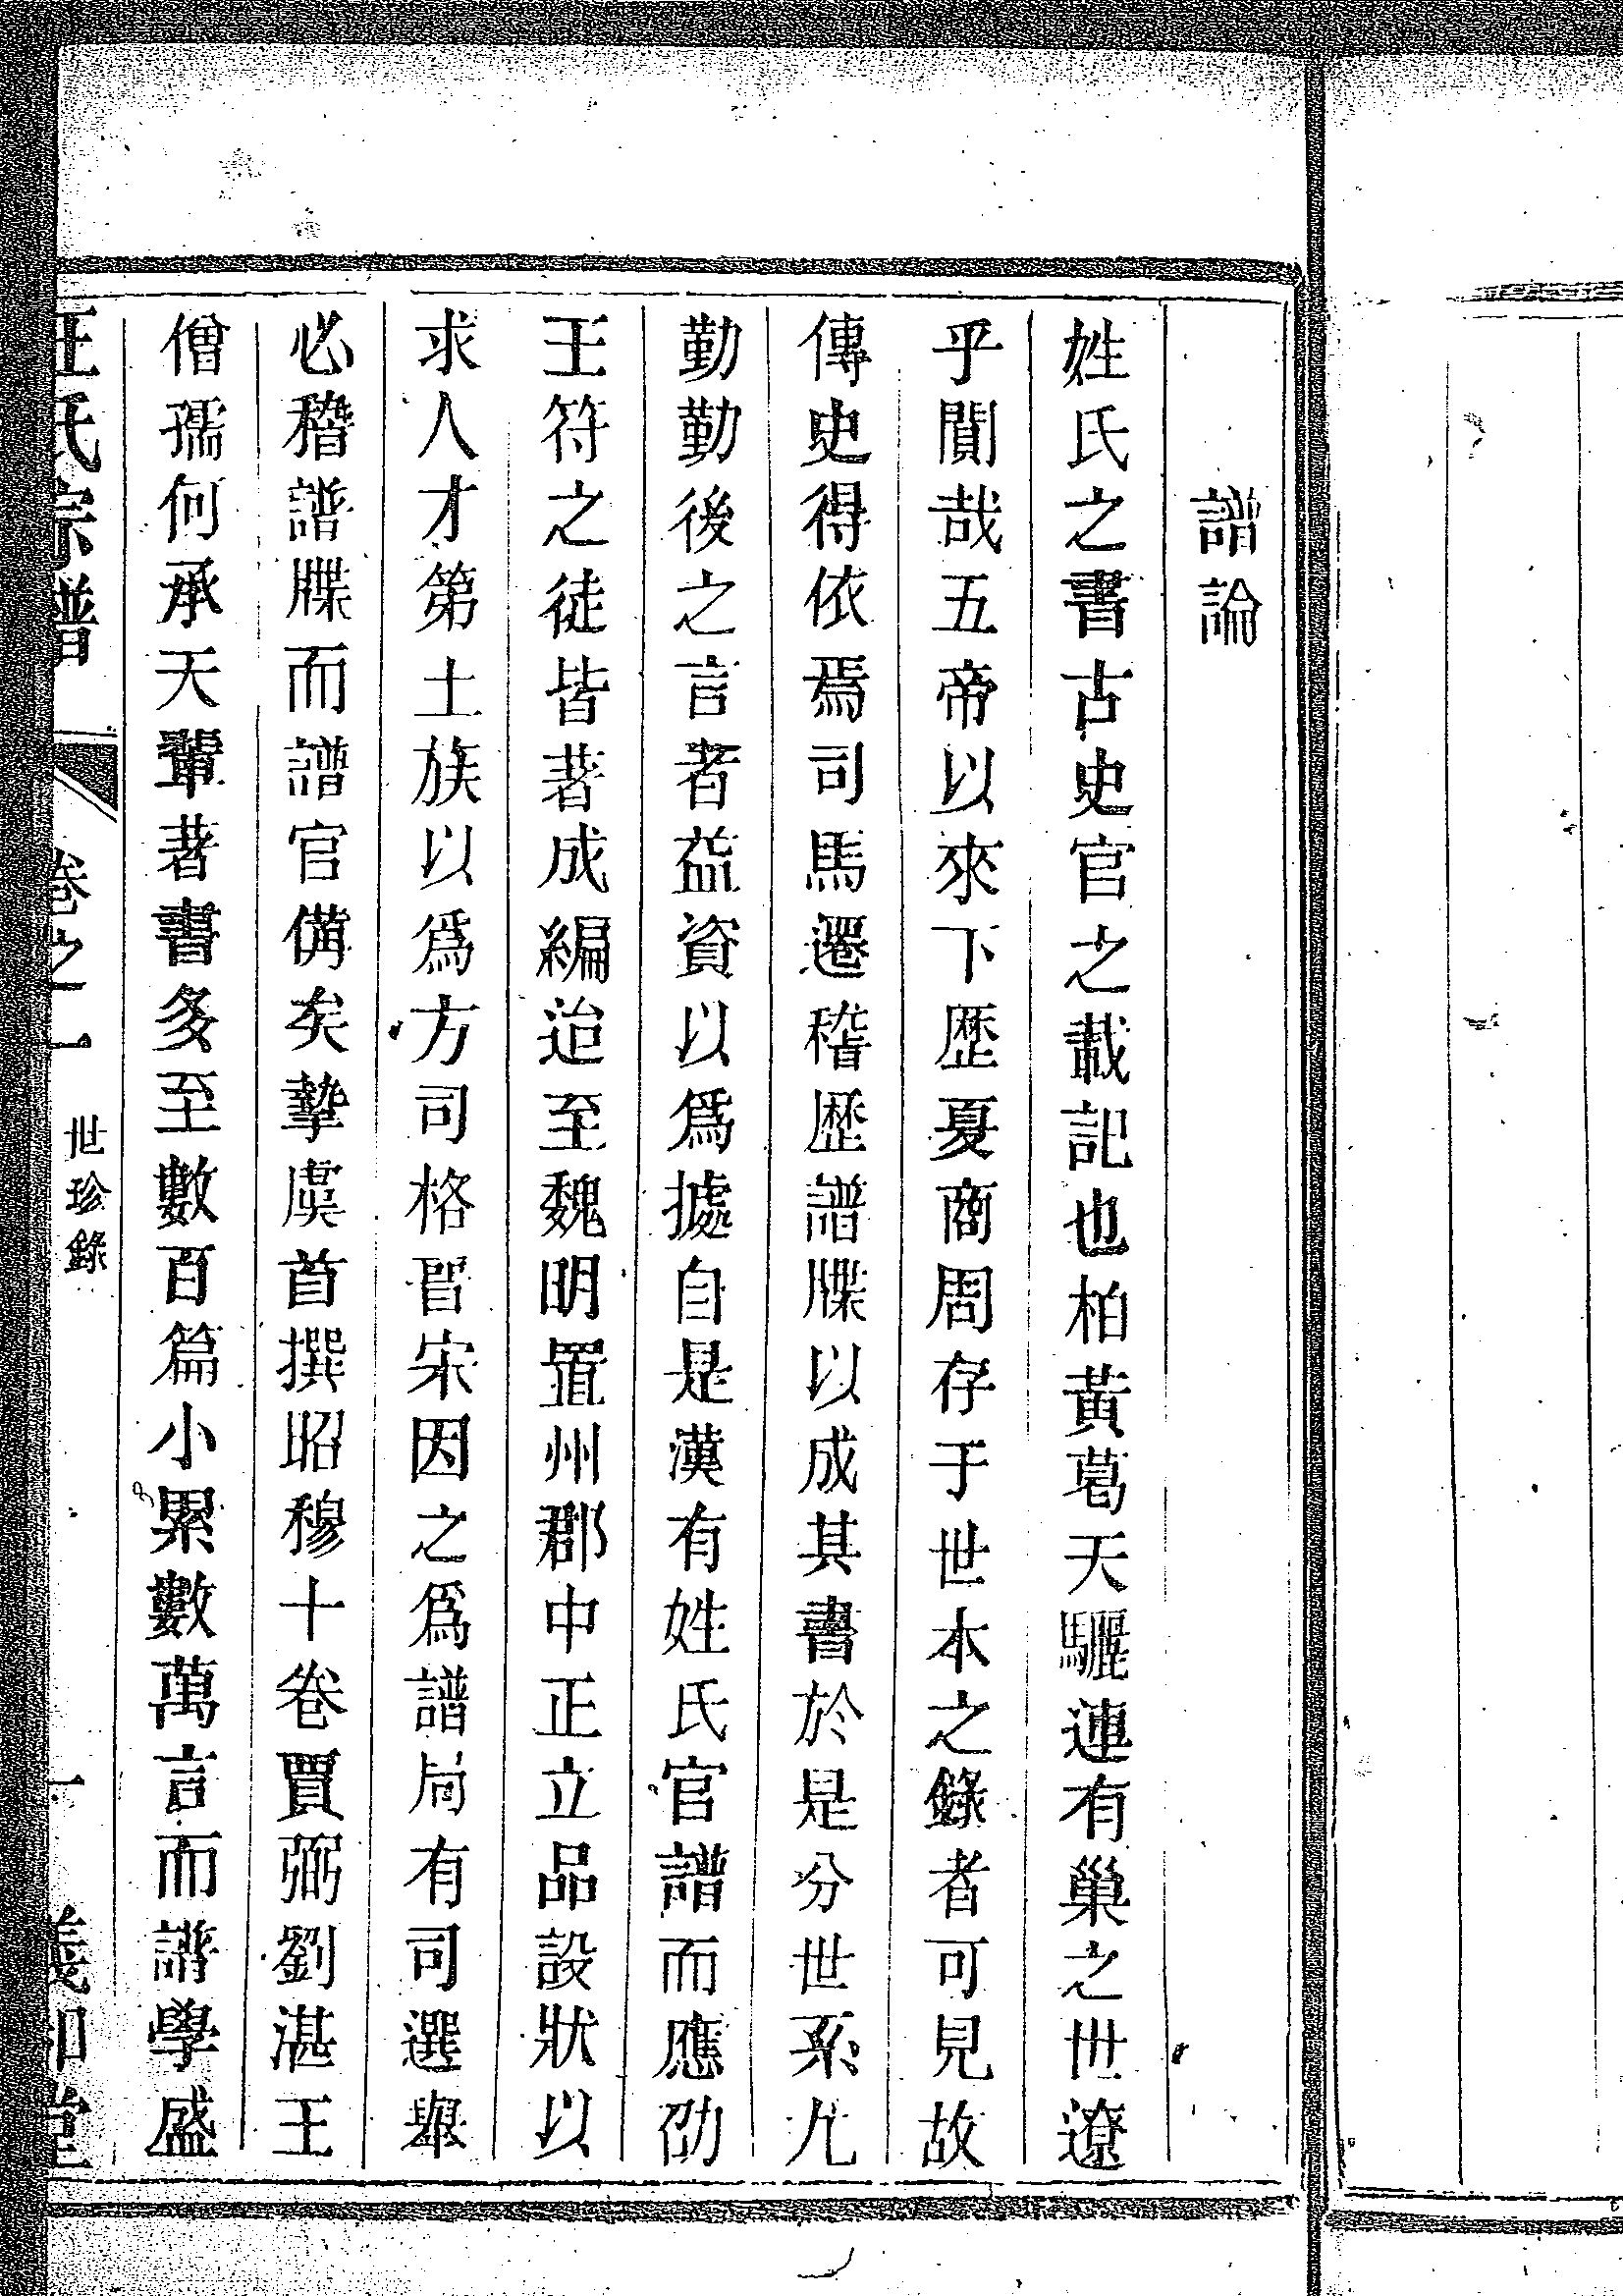 譜論
姓氏之書古史官之載記也柏黃葛天驪連有巢之世遼
乎閴哉五帝以來下歴夏商周存于世本之錄者可見故
傳史得依焉司馬遷稽歴譜牒以成其書於是分世系尢
勤勤後之言者益資以爲據自是漢有姓氏官譜而應劭
王符之徒皆著成編迨至魏明置州郡中正立品設狀以
求人才第士族以爲方司格晉宋因之爲譜局有司選舉
必稽譜牒而譜官備矣摯虞首撰昭穆十卷賈弼劉湛王
僧孺何承天輩著書多至數百篇小累數萬言而譜學盛
王氏宗譜 卷之一 世珍錄 一 義和堂